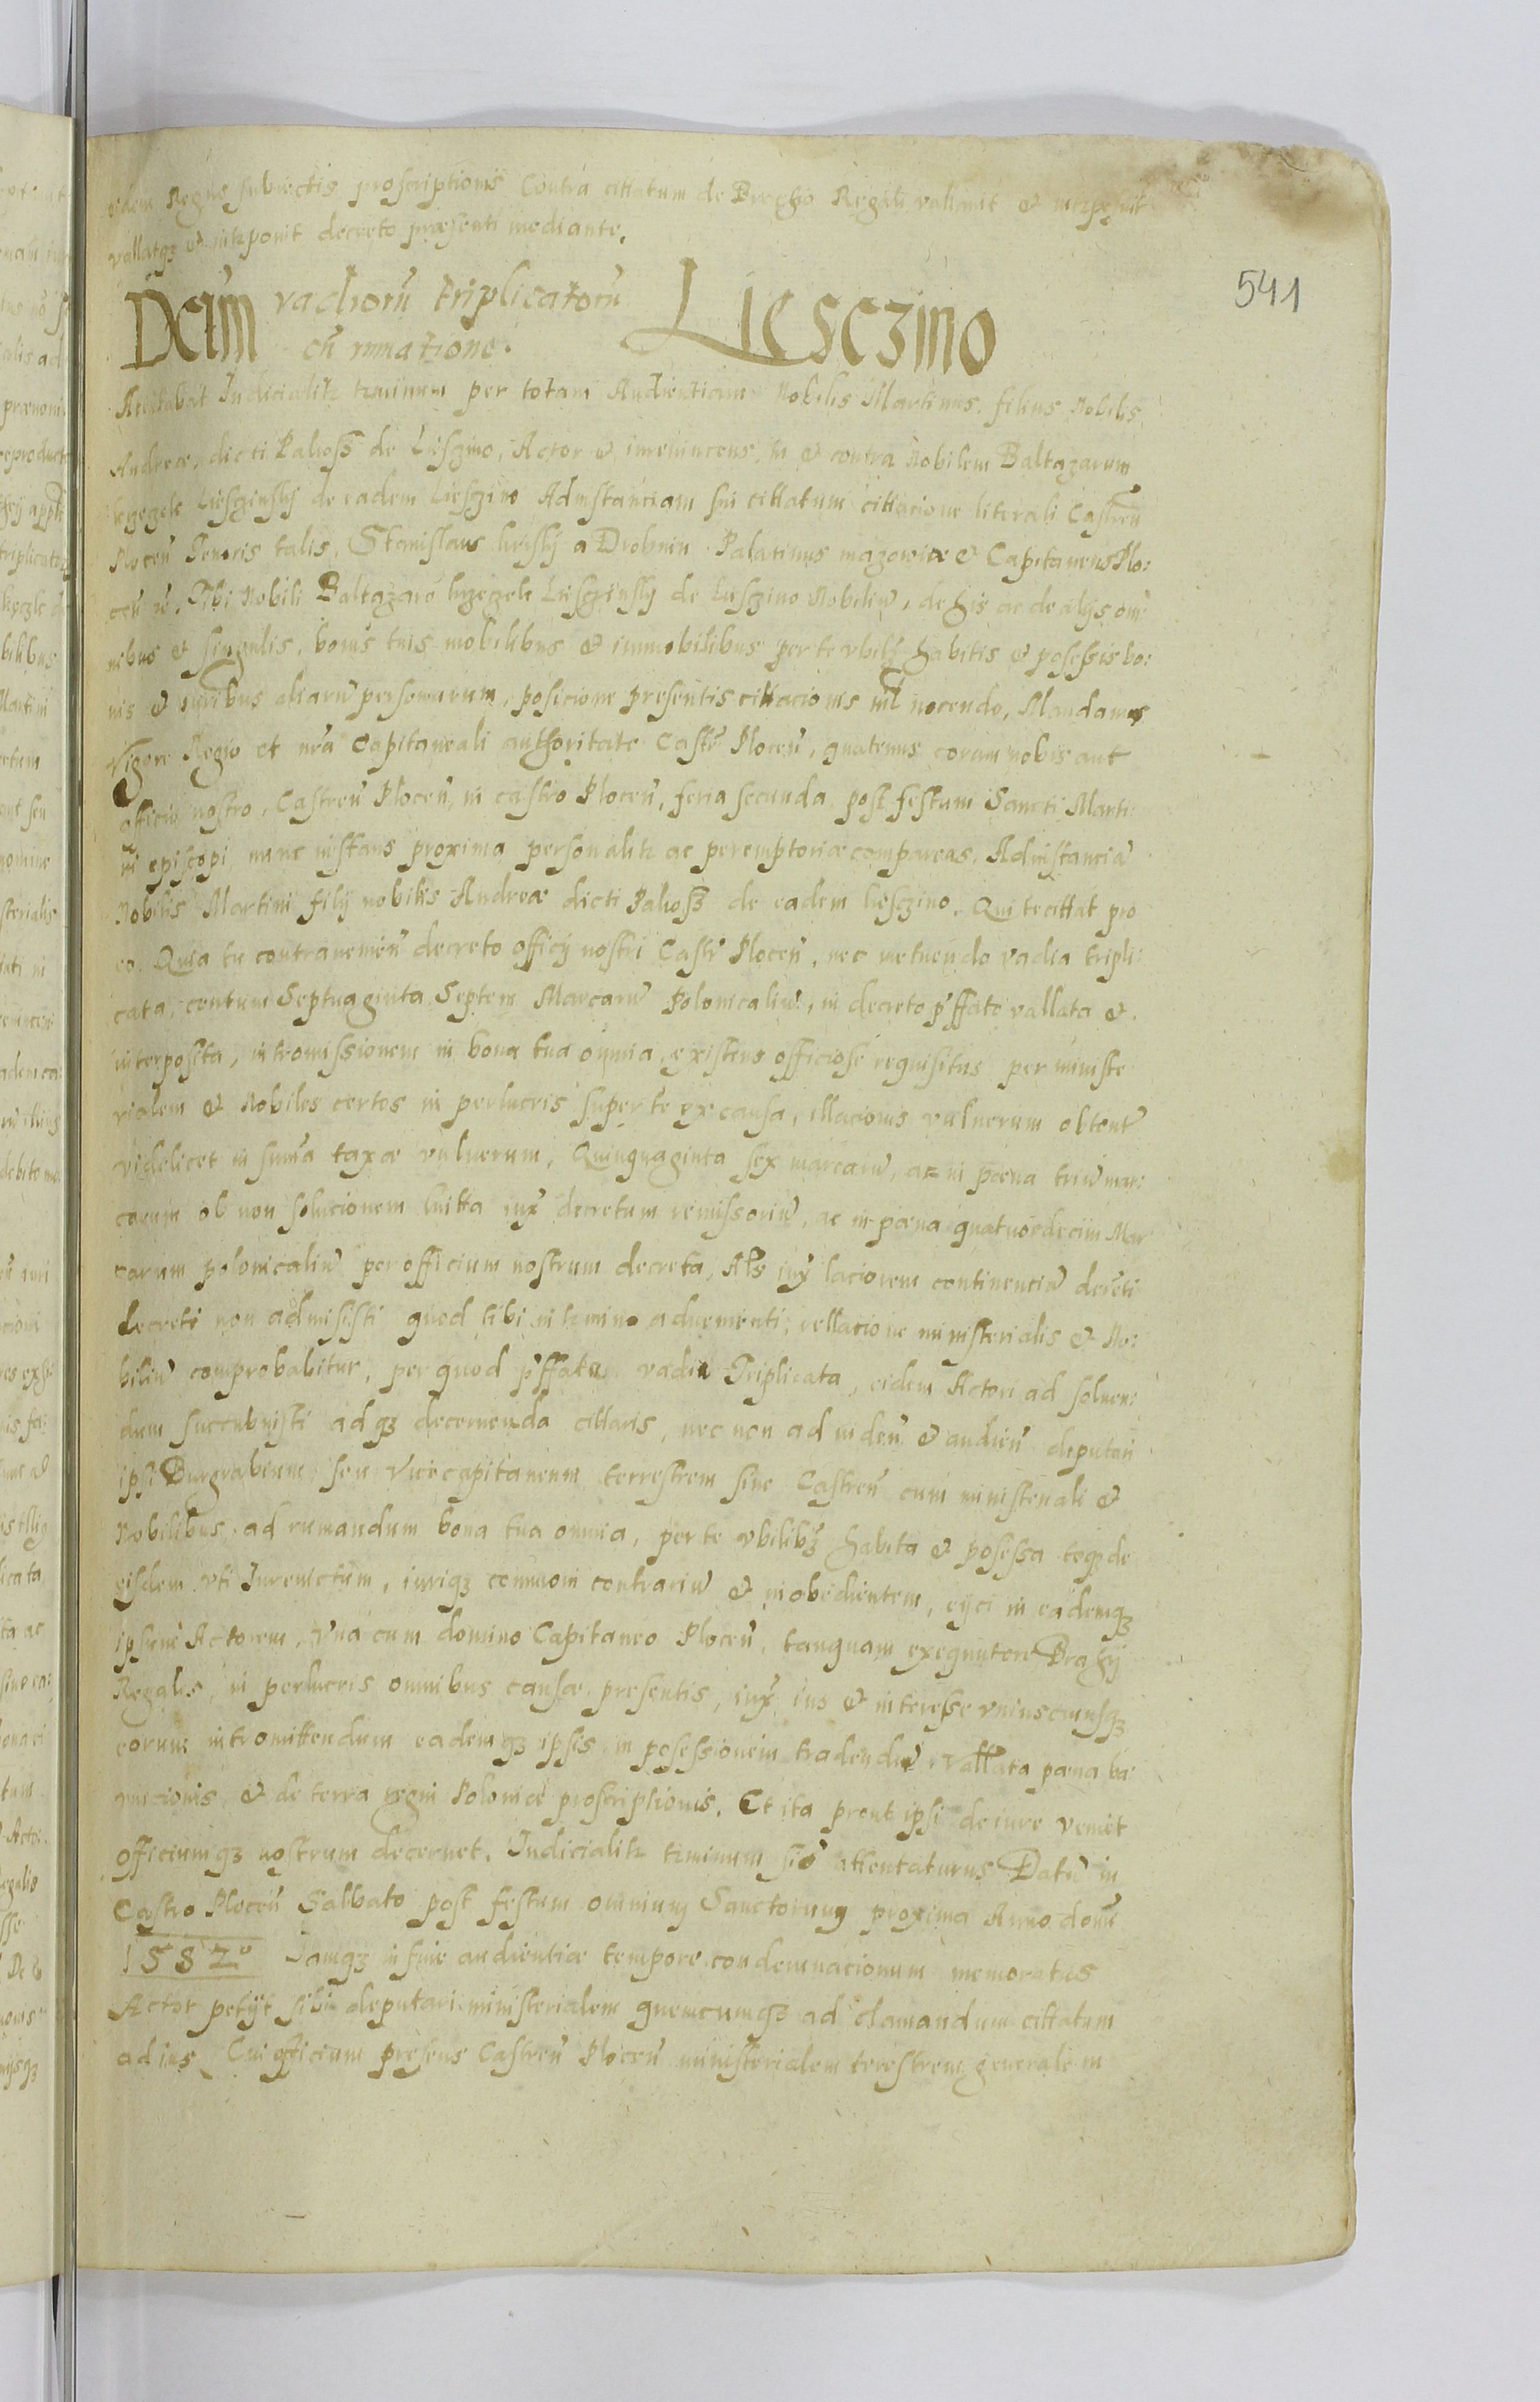 eidem Regnis subiectis proscriptionis Contra cittatum de Brachio Regali vallavit et
vallatqз et intzponit decreto præsenti mediante.
541
Dcim vadiorũ triplicatorũ Liesczino
cũ rumatione.
Attẽtabat Judicialitz tzminum per totam Audientiam Nobilis Martinus filius Nobilis
Andreæ, dicti Paliosz de Liesczino, Actor et in et contra Nobilem Baltazarum
Liesczinsky de eadem Liesczino Adinstanciam sui cittatum cittacione literali Castreñ
Ploceñ Tenoris talis, Stanislaus krisky a Drobnin Palatinus mazowiæ et Capitaneus Plo:
ceñ Tibi Nobili Baltazaro Liesczinsky de Liesczino Nobiliũ, de his ac de alijs om
nibus et singulis, bonis tuis mobilibus et immobilibus per te vbilz habitis et posessis bo:
nis et iuribus aliarũ personarum, posicione presentis cittacionis nil nocendo, Mandamus
Vigore Regio et nr̃a Capitaneali authoritate Castr̃ Ploceñ, quatenus coram nobis aut
officio nostro, Castreñ Ploceñ, in castro Ploceñ, feria secunda post festum Sancti Marti
ni episcopi, nunc instans proxima personalitz ac peremptoriæ compareas, Adinstanciã
Nobilis Martini filij nobilis Andreæ dicti Paliosz de eadem Liesczino, Qui te cittat pro
eo. Quia tu contraveniẽn decreto officij nostri Castr̃ Ploceñ, nec metuendo vadia tripli:
cata, centum Septuaginta Septem Marcarũ Polonicaliũ, in decreto p̃ffato vallata et
interposita, intromissionem in bona tua omnia, existens officiose requisitus per ministe
rialem et Nobiles certos in perlucris super te ex causa, illacionis vulnerum obtent̃
videlicet in sum̃a taxæ vulnerum, Quinquaginta sex marcarũ, ac in pœna triũ mar:
carum ob non solucionem luitta iux̃ decretum remissoriũ, ac in pœna quatuordecim Mar
carum polonicaliũ per officium nostrum decreta, Als iux̃ laciorem continenciã
decreti non admisisti quod tibi in tzmino advenienti, rellacione ministerialis et No:
biliũ comprobabitur, per quod p̃ffata vadia Triplicata, eidem Actori ad solven:
dum succubuisti ad qз decernenda cittaris, nec non ad videñ et audieñ deputari
ipsi Burgrabium seu Vicecapitaneum terrestrem sive Castreñ cum ministeriali et
Nobilibus ad rumandum bona tua omnia, per te vbilibз habita et posessa teqз de
eisdem vti Jurevictum, iuriqз com̃uni contrariũ et inobedientem, eijci in eademqз
ipsum̃ Actorem, vna cum domino Capitaneo Ploceñ, tanquam exequutore Brachij
Regalis, in perlucris omnibus causæ presentis, iux̃ ius et interesse vniuscuiusqз
eorum intromittendum eademqз ipsis in posessionem tradendũ, vallata pœna ba
nicionis, et de terra regni Poloniæ proscriptionis. Et ita prout ipsi de iure venit
officiumqз nostrum decernet. Judicialitz tzminum attentaturus Datũ in
Castro Ploceñ Sabbato post festum omnium Sanctorum proxima Anno domĩ
1582° Jamqз in fine audientiæ tempore condemnacionum memoratus
Actor petijt sibi deputari ministerialem quemcumqз ad clamandum cittatum
ad ius, Cui officium presens Castreñ Ploceñ ministerialem terestrem generalem